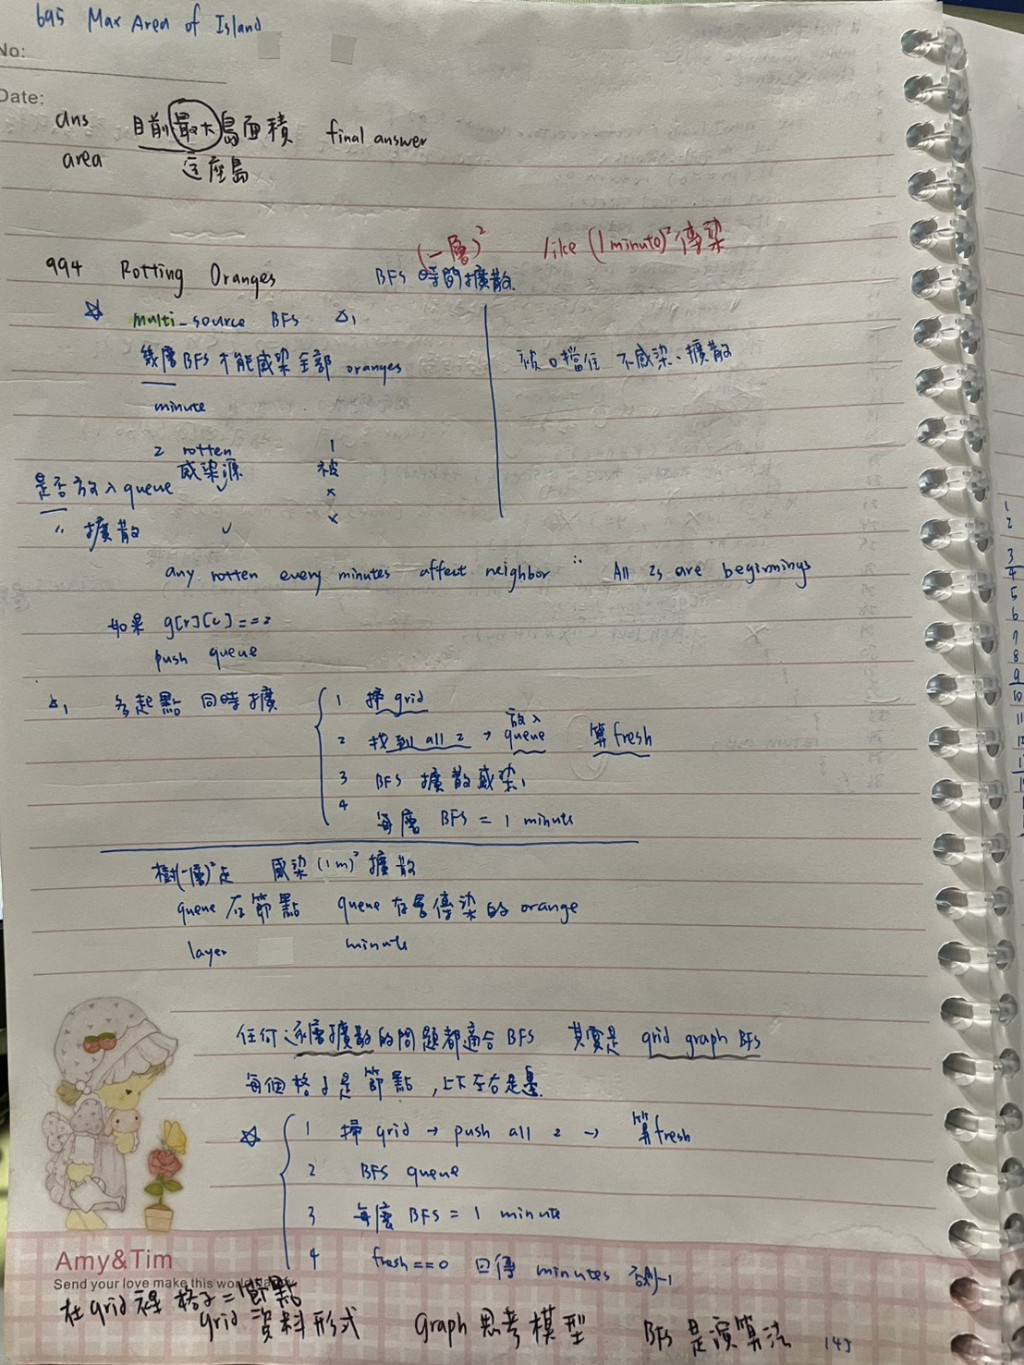 695 Max Area of Island
No:
Date:
ans 目前最大島面積 final answer
area 這座島
(一層)² like (1 minute)² 傳染
994 Rotting Oranges BFS 時間擴散.
☆ multi-source BFS △1
幾層BFS才能感染全部 oranges 被0擋住 不感染、擴散
minute
2 rotten 1
感染源 被
是否放入queue ✓ ×
〃 擴散 ✓ ×
any rotten every minutes affect neighbor ∵ All 2s are beginnings
如果 g[r][c]==2
push queue
△1 多起點 同時擴 1 掃 grid
2 找到 all 2 → 放入 queue 算fresh
3 BFS 擴散感染
4 每層 BFS = 1 minute
樹(一層)²走 感染(1m)² 擴散
queue 存節點 queue 存會傳染的 orange
layer minute
任何逐層擴散的問題都適合BFS 其實是 grid graph BFS
每個格子是節點,上下左右是邊.
☆ 1 掃 grid → push all 2 → 算fresh
2 BFS queue
3 每層 BFS = 1 minute
4 fresh==0 回傳 minutes 否則-1
Amy&Tim
Send your love make this world
在grid裡 格子=節點
grid 資料形式 Graph 思考模型 BFS 是演算法 145